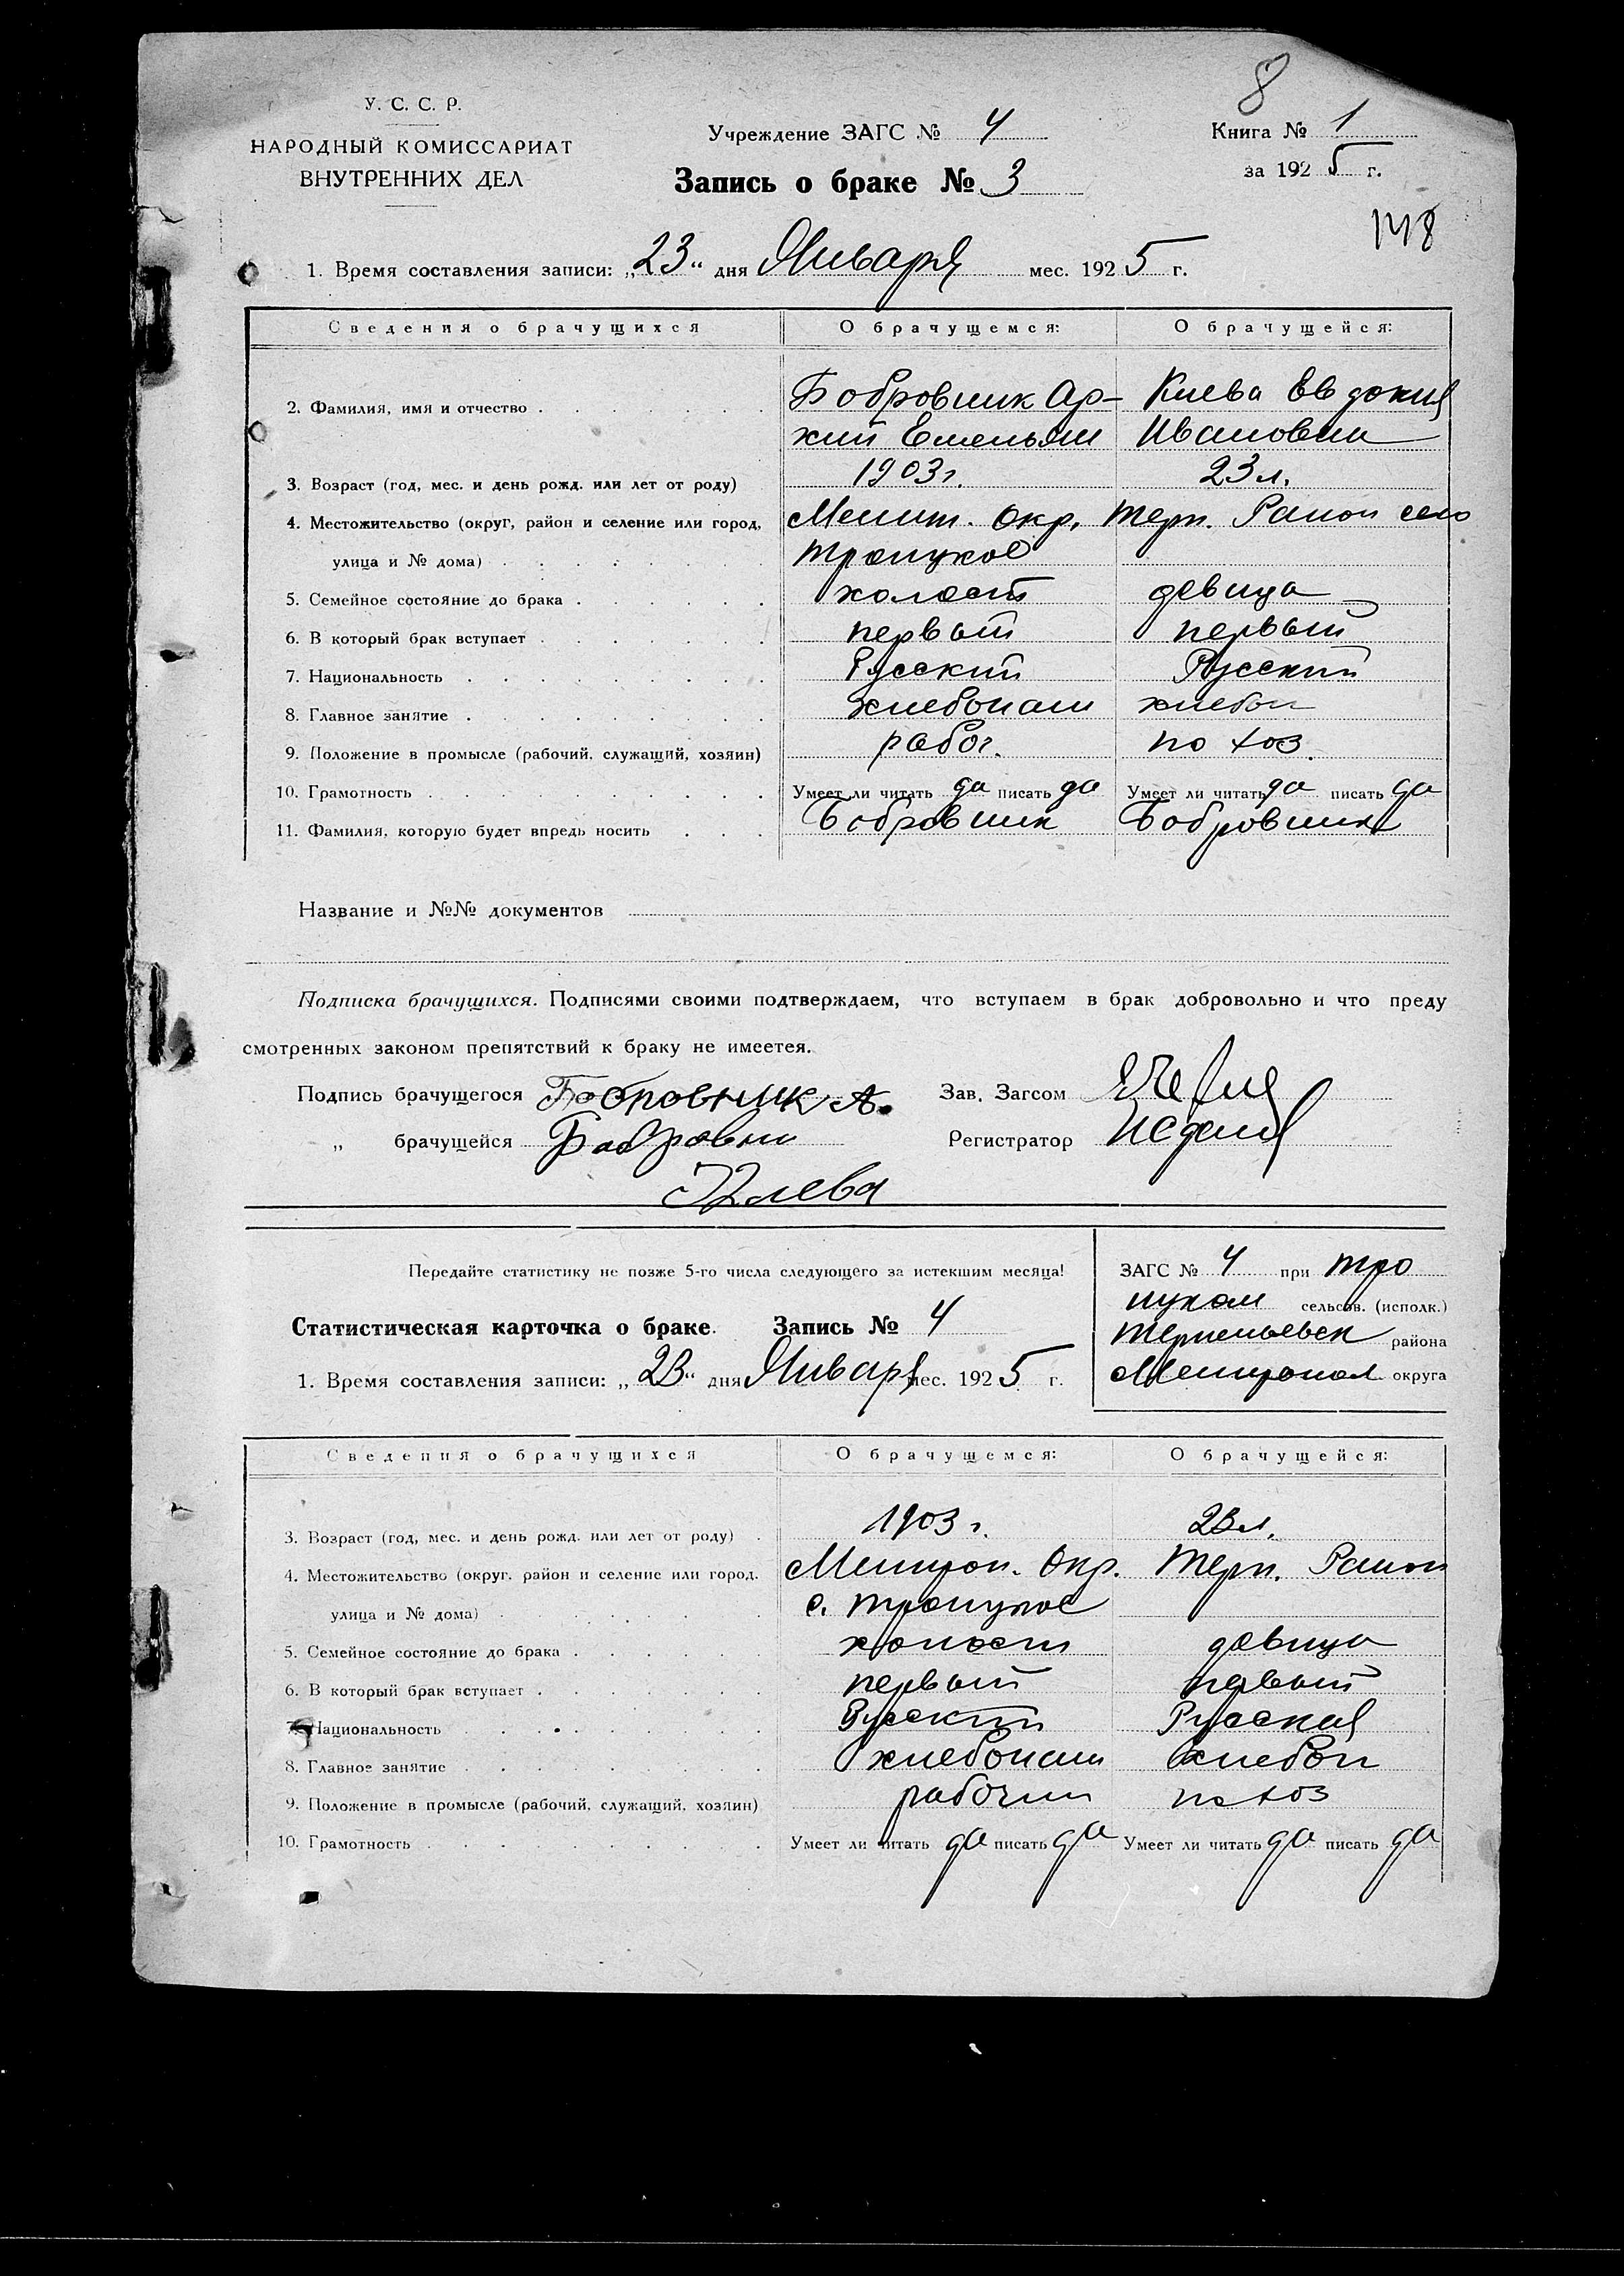 8
У. С. С. Р.
НАРОДНЫЙ КОМИССАРИАТ
ВНУТРЕННИХ ДЕЛ
Учреждение ЗАГС № 4
Запись о браке № 3
Книга № 1
за 1925 г.
148
1. Время составления записи: „23“ дня Января мес. 1925 г.
Сведения о брачущихся О брачущемся: О брачущейся:
2. Фамилия, имя и отчество Бобровник Ар- Клева Евдокия
хип Емельян Ивановна
3. Возраст (год, мес. и день рожд. или лет от роду) 1903 г. 23 л.
4. Местожительство (округ, район и селение или город, Мелит. Окр. Терп. Район село
улица и № дома) Троицкое
5. Семейное состояние до брака холост девица
6. В который брак вступает первый первый
7. Национальность Русский Русский
8. Главное занятие хлебопаш хлебоп
9. Положение в промысле (рабочий, служащий, хозяин) рабоч. по хоз.
10. Грамотность Умеет ли читать да писать да Умеет ли читать да писать да
11. Фамилия, которую будет впредь носить Бобровник Бобровник
Название и №№ документов
Подписка брачущихся. Подписями своими подтверждаем, что вступаем в брак добровольно и что преду
смотренных законом препятствий к браку не имеетея.
Подпись брачущегося Бобровник А. Зав. Загсом
„ брачущейся Бобровни Регистратор
Клева
Передайте статистику не позже 5-го числа следующего за истекшим месяца!
Статистическая карточка о браке. Запись № 4
1. Время составления записи: „23“ дня Января мес. 1925 г.
ЗАГС № 4 при Тро
ицком сельсов. (исполк.)
Терпеньевск района
Мелитопол округа
Сведения о брачущихся О брачущемся: О брачущейся:
3. Возраст (год, мес. и день рожд. или лет от роду) 1903 г. 23 л.
4. Местожительство (округ, район и селение или город, Мелитоп. Окр. Терп. Район
улица и № дома) с. Троицкое
5. Семейное состояние до брака холост девица
6. В который брак вступает первый первый
7. Национальность Русский Русская
8. Главное занятие хлебопаш хлебоп
9. Положение в промысле (рабочий, служащий, хозяин) рабочий по хоз
10. Грамотность Умеет ли читать да писать да Умеет ли читать да писать да